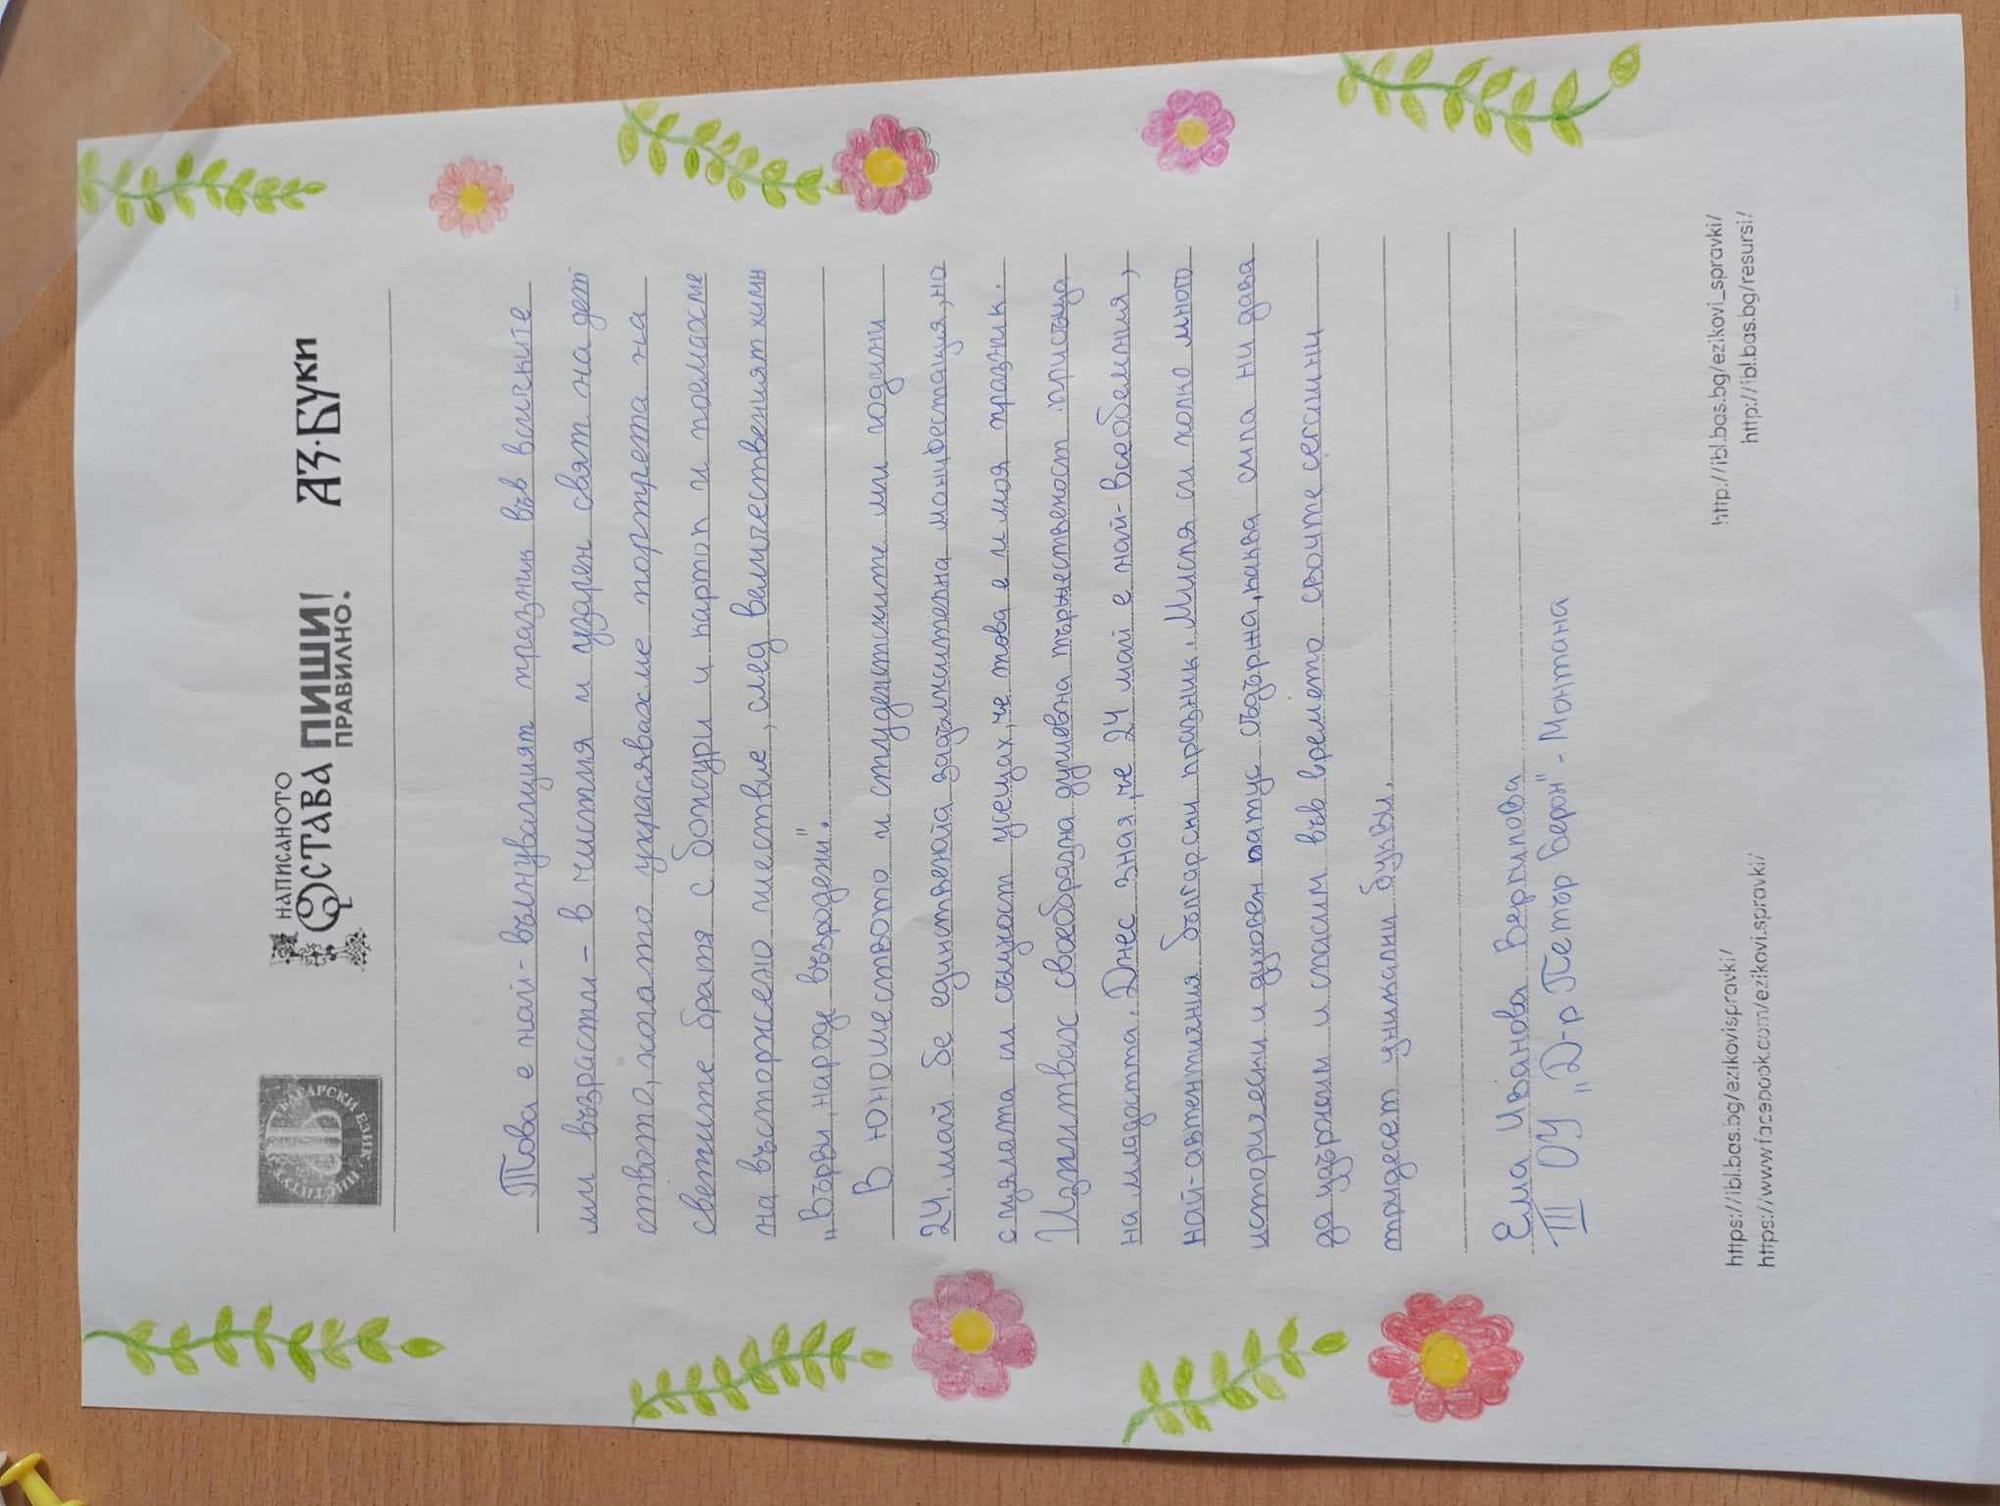 БЪЛГАРСКИ ЕЗИК ИНСТИТУТ
НАПИСАНОТО
ОСТАВА ПИШИ!
ПРАВИЛНО.
АЗ·БУКИ
Това е най-вълнувалият празник във всичките
ми възрасти - в чистия и узарен свят на дет
ството, когато украсявахме портрета на
светите братя с божури и картон и поемахме
на въсторжено шествие, след величественият химн
"Върви, народе възродени".
В юношеството и студентските ми години
24. май бе единствената задължителна манифестация, на
с цялата си същност усещах, че това е и моя празник.
Изпитвах своеобразна душевна тържественост присъща
на младостта. Днес зная, че 24 май е най-всеобемния,
най-автентичния български празник. Мисля си колко много
исторически и духовен патус съдържа, каква сила ни дава
да издържим и спасим във времето своите сегашни
тридесет уникални букви.
Ема Иванова Вергилова
III ОУ "Д-р Петър Берон" - Монтана
https://ibl.bas.bg/ezikovispravki/
https://www.facebook.com/ezikovi.spravki/
http://ibl.bas.bg/ezikovi_spravki/
http://ibl.bas.bg/resursi/